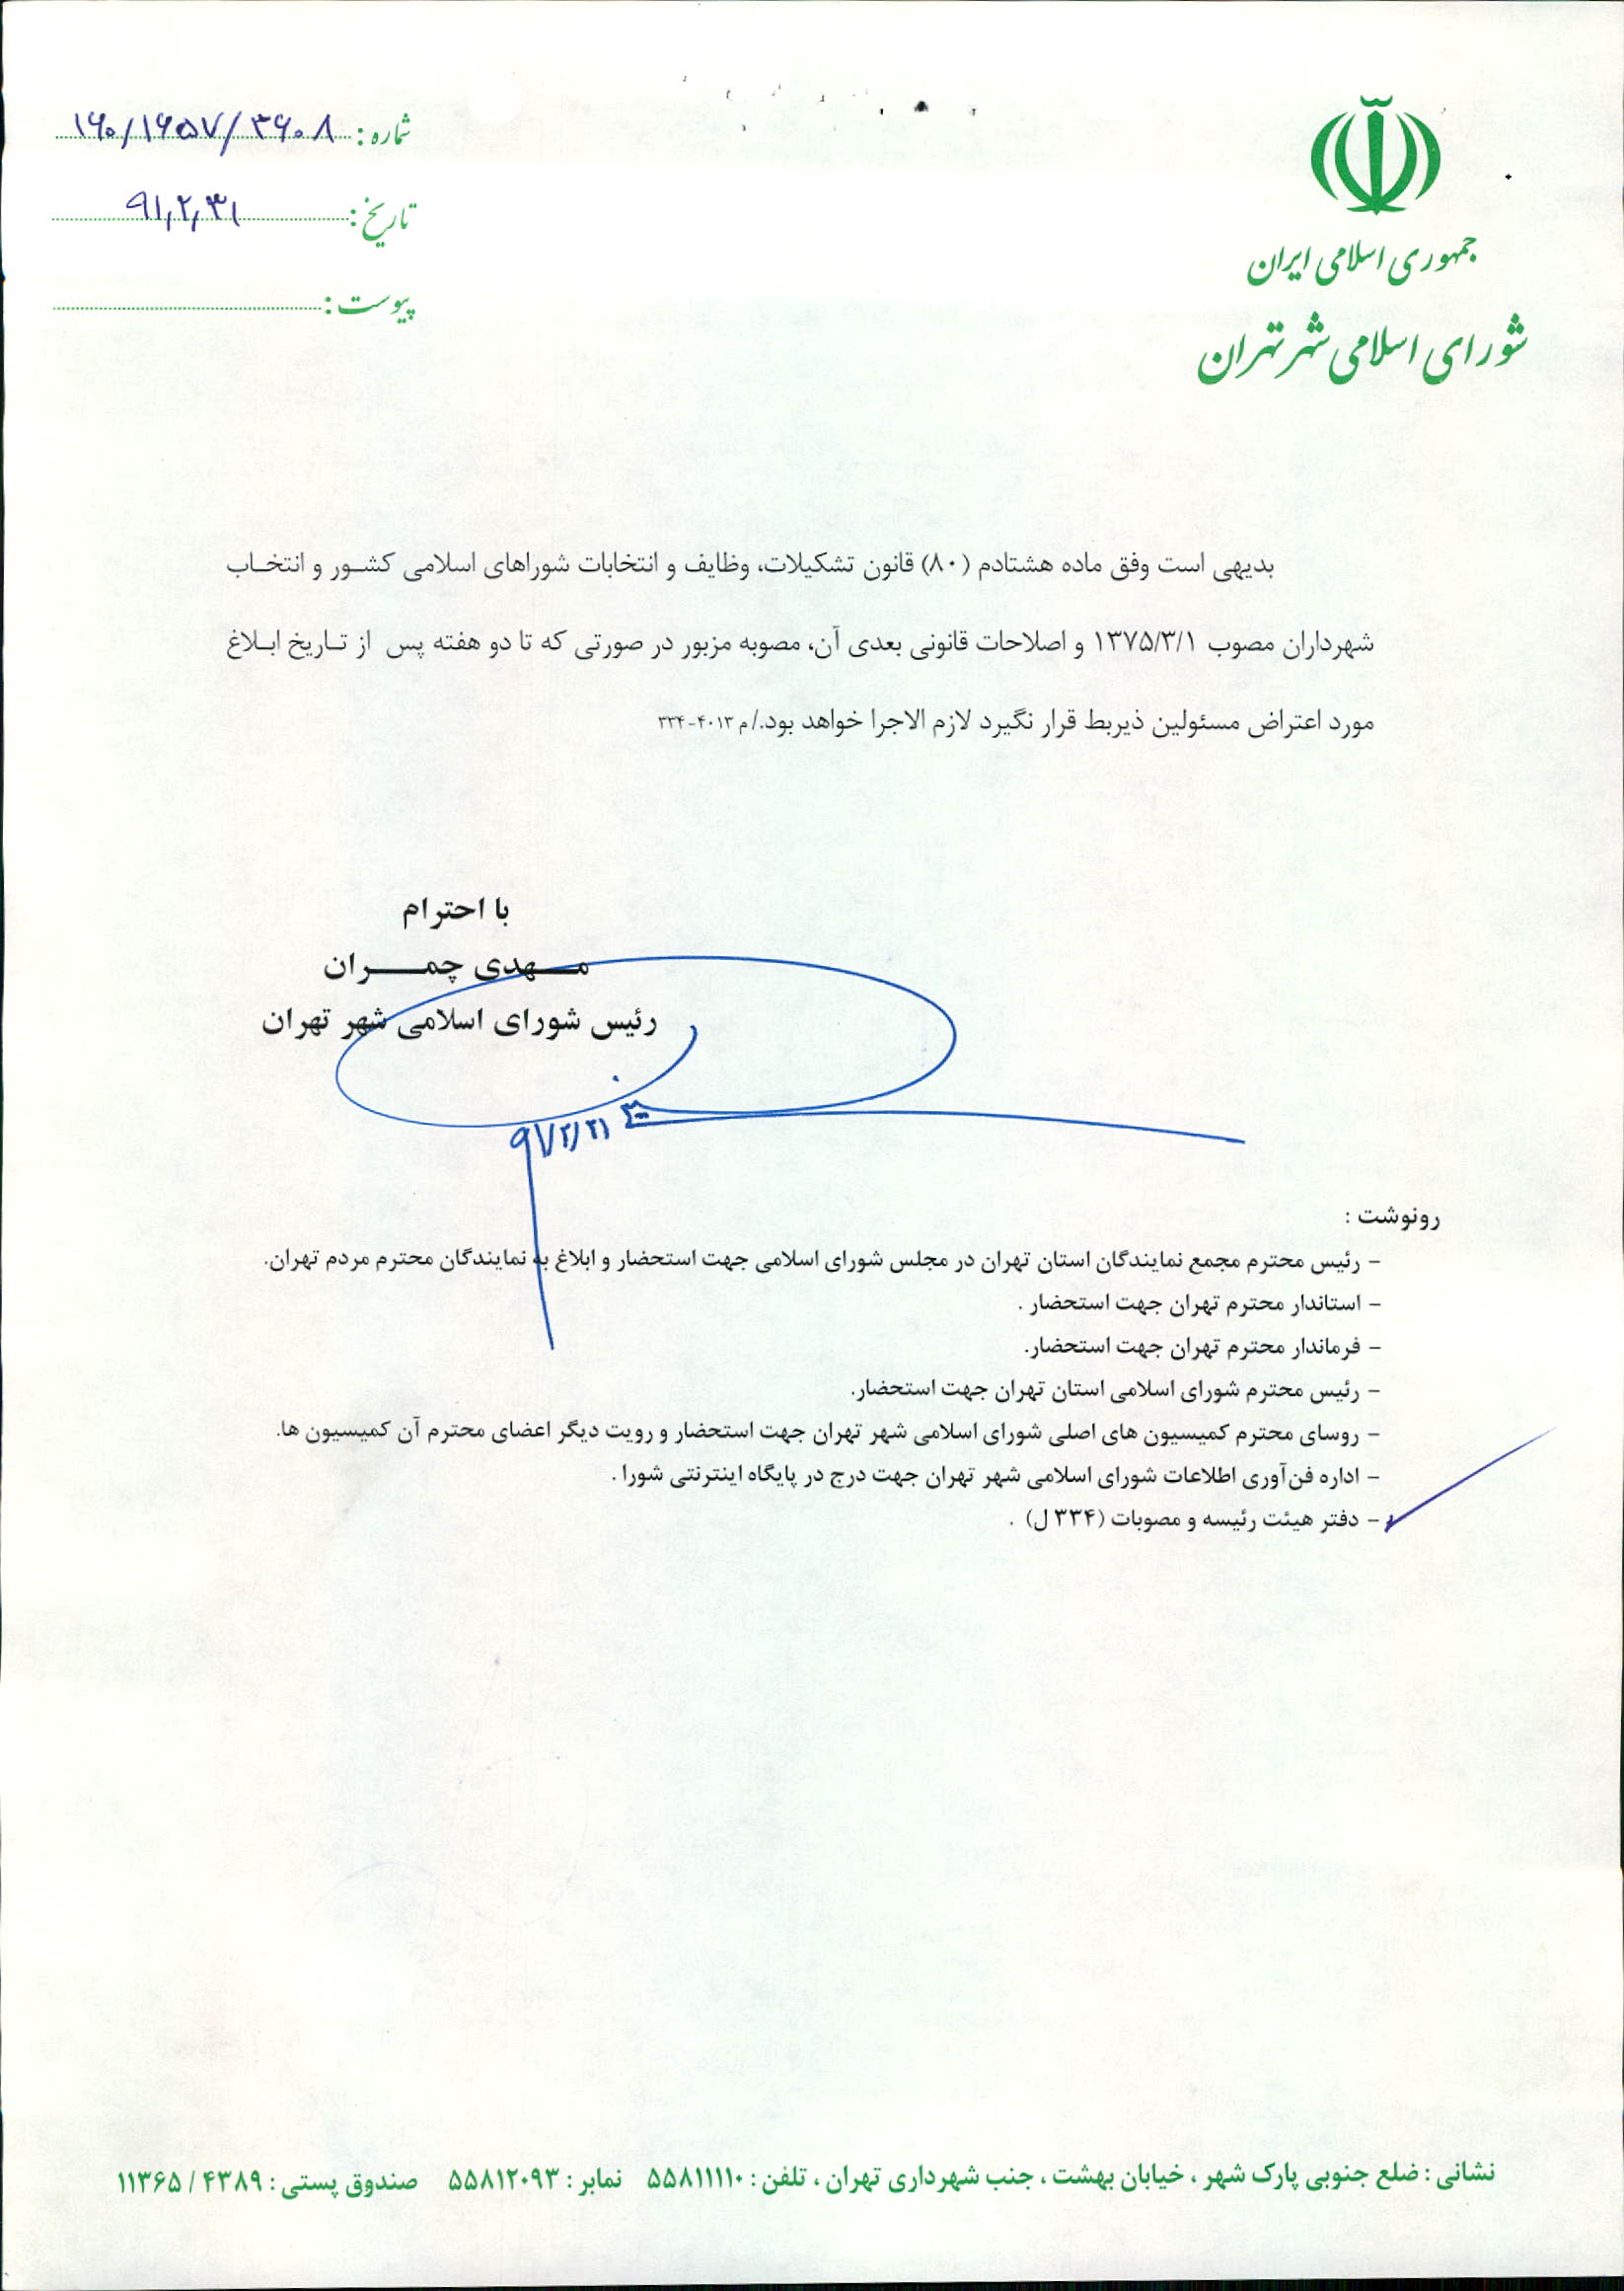 جمهوری اسلامی ایران
شورای اسلامی شهر تهران
شماره : ۱۶۰/۱۶۵۷/۳۶۰۸
تاریخ : ۹۱,۲,۳۱
پیوست :
بدیهی است وفق ماده هشتادم (۸۰) قانون تشکیلات، وظایف و انتخابات شوراهای اسلامی کشور و انتخاب
شهرداران مصوب ۱۳۷۵/۳/۱ و اصلاحات قانونی بعدی آن، مصوبه مزبور در صورتی که تا دو هفته پس از تاریخ ابلاغ
مورد اعتراض مسئولین ذیربط قرار نگیرد لازم الاجرا خواهد بود./م ۴۰۱۳-۳۳۴
با احترام
مهدی چمران
رئیس شورای اسلامی شهر تهران
۹۱/۲/۳۱
رونوشت :
- رئیس محترم مجمع نمایندگان استان تهران در مجلس شورای اسلامی جهت استحضار و ابلاغ به نمایندگان محترم مردم تهران.
- استاندار محترم تهران جهت استحضار .
- فرماندار محترم تهران جهت استحضار.
- رئیس محترم شورای اسلامی استان تهران جهت استحضار.
- روسای محترم کمیسیون های اصلی شورای اسلامی شهر تهران جهت استحضار و رویت دیگر اعضای محترم آن کمیسیون ها.
- اداره فن‌آوری اطلاعات شورای اسلامی شهر تهران جهت درج در پایگاه اینترنتی شورا .
- دفتر هیئت رئیسه و مصوبات (۳۳۴ ل) .
نشانی : ضلع جنوبی پارک شهر ، خیابان بهشت ، جنب شهرداری تهران ، تلفن : ۵۵۸۱۱۱۱۰ نمابر : ۵۵۸۱۲۰۹۳ صندوق پستی : ۴۳۸۹ / ۱۱۳۶۵